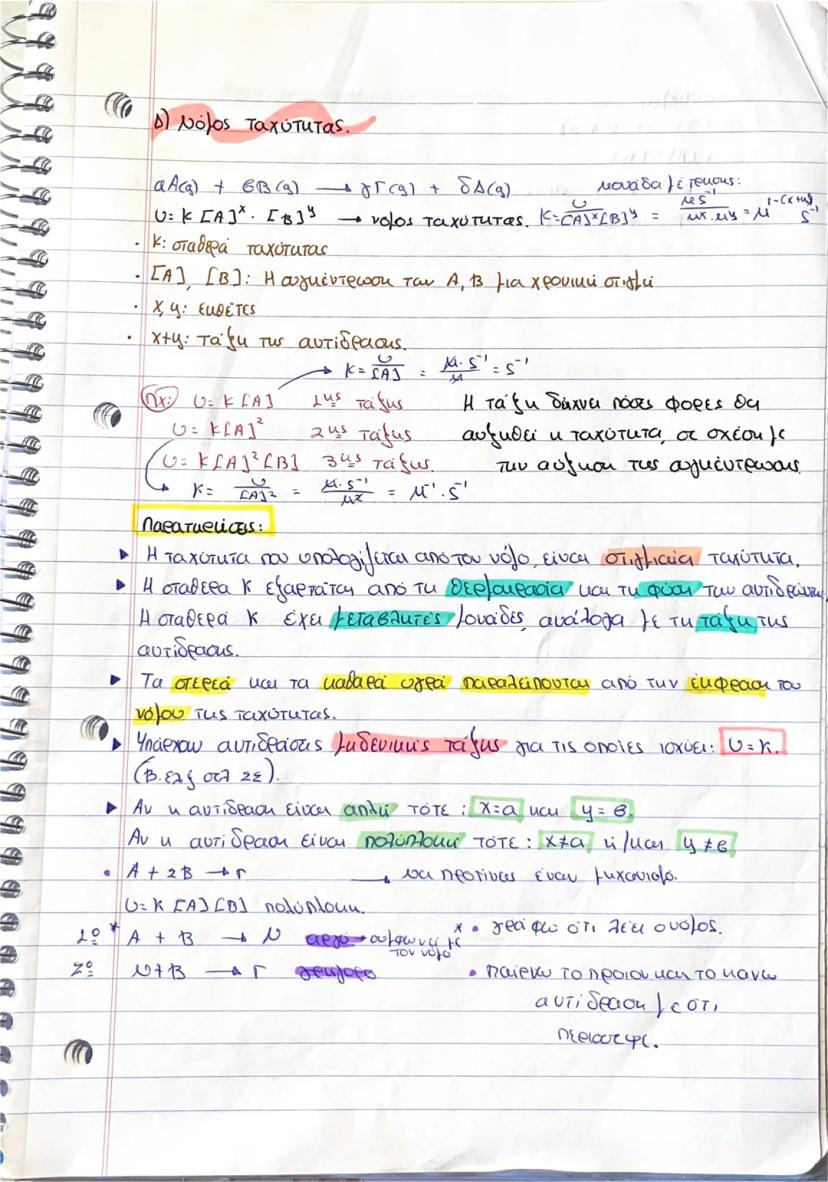 Δ) Νόμος ταχύτητας.
αΑ(g) + βΒ(g) → γΓ(g) + δΔ(g) μονάδα μέτρησης:
υ= κ [Α]ˣ · [Β]ʸ → νόμος ταχύτητας. κ= υ/[Α]ˣ[Β]ʸ = Μ s⁻¹/Μˣ·Μʸ = Μ¹⁻⁽ˣ⁺ʸ⁾ s⁻¹
· κ: σταθερά ταχύτητας
· [Α], [Β]: Η συγκέντρωση των Α, Β μια χρονική στιγμή
· x, y: εκθέτες
· x+y: τάξη της αντίδρασης.
κ= υ/[Α] = Μ·s⁻¹/Μ = s⁻¹
Πχ: υ= κ[Α] 1ης τάξης Η τάξη δείχνει πόσες φορές θα
υ= κ[Α]² 2ης τάξης αυξηθεί η ταχύτητα, σε σχέση με
υ= κ[Α]²[Β] 3ης τάξης. την αύξηση της συγκέντρωσης
κ= υ/[Α]² = Μ·s⁻¹/Μ² = Μ⁻¹·s⁻¹
Παρατηρήσεις:
▸ Η ταχύτητα που υπολογίζεται από τον νόμο, είναι στιγμιαία ταχύτητα.
▸ Η σταθερά κ εξαρτάται από τη θερμοκρασία και τη φύση των αντιδρώντων
Η σταθερά κ έχει μεταβλητές μονάδες, ανάλογα με τη τάξη της
αντίδρασης.
▸ Τα στερεά και τα καθαρά υγρά παραλείπονται από την έκφραση του
νόμου της ταχύτητας.
▸ Υπάρχουν αντιδράσεις μηδενικής τάξης για τις οποίες ισχύει: υ=κ.
(Β.ελξ σελ 25).
▸ Αν η αντίδραση είναι απλή τότε : x=α και y=β.
Αν η αντίδραση είναι πολύπλοκη τότε : x≠α ή/και y≠β
• Α + 2Β → Γ → να προτίνεις έναν μηχανισμό.
υ= κ [Α][Β] πολύπλοκη.
1ο * Α + Β → Ν αργό → συμφωνεί με τον νόμο * • γράφω ότι λέει ο νόμος.
2ο Ν+Β → Γ γρήγορο • παίρνω το προιον και το κάνω
αντίδραση με ότι
περίσσεψε.